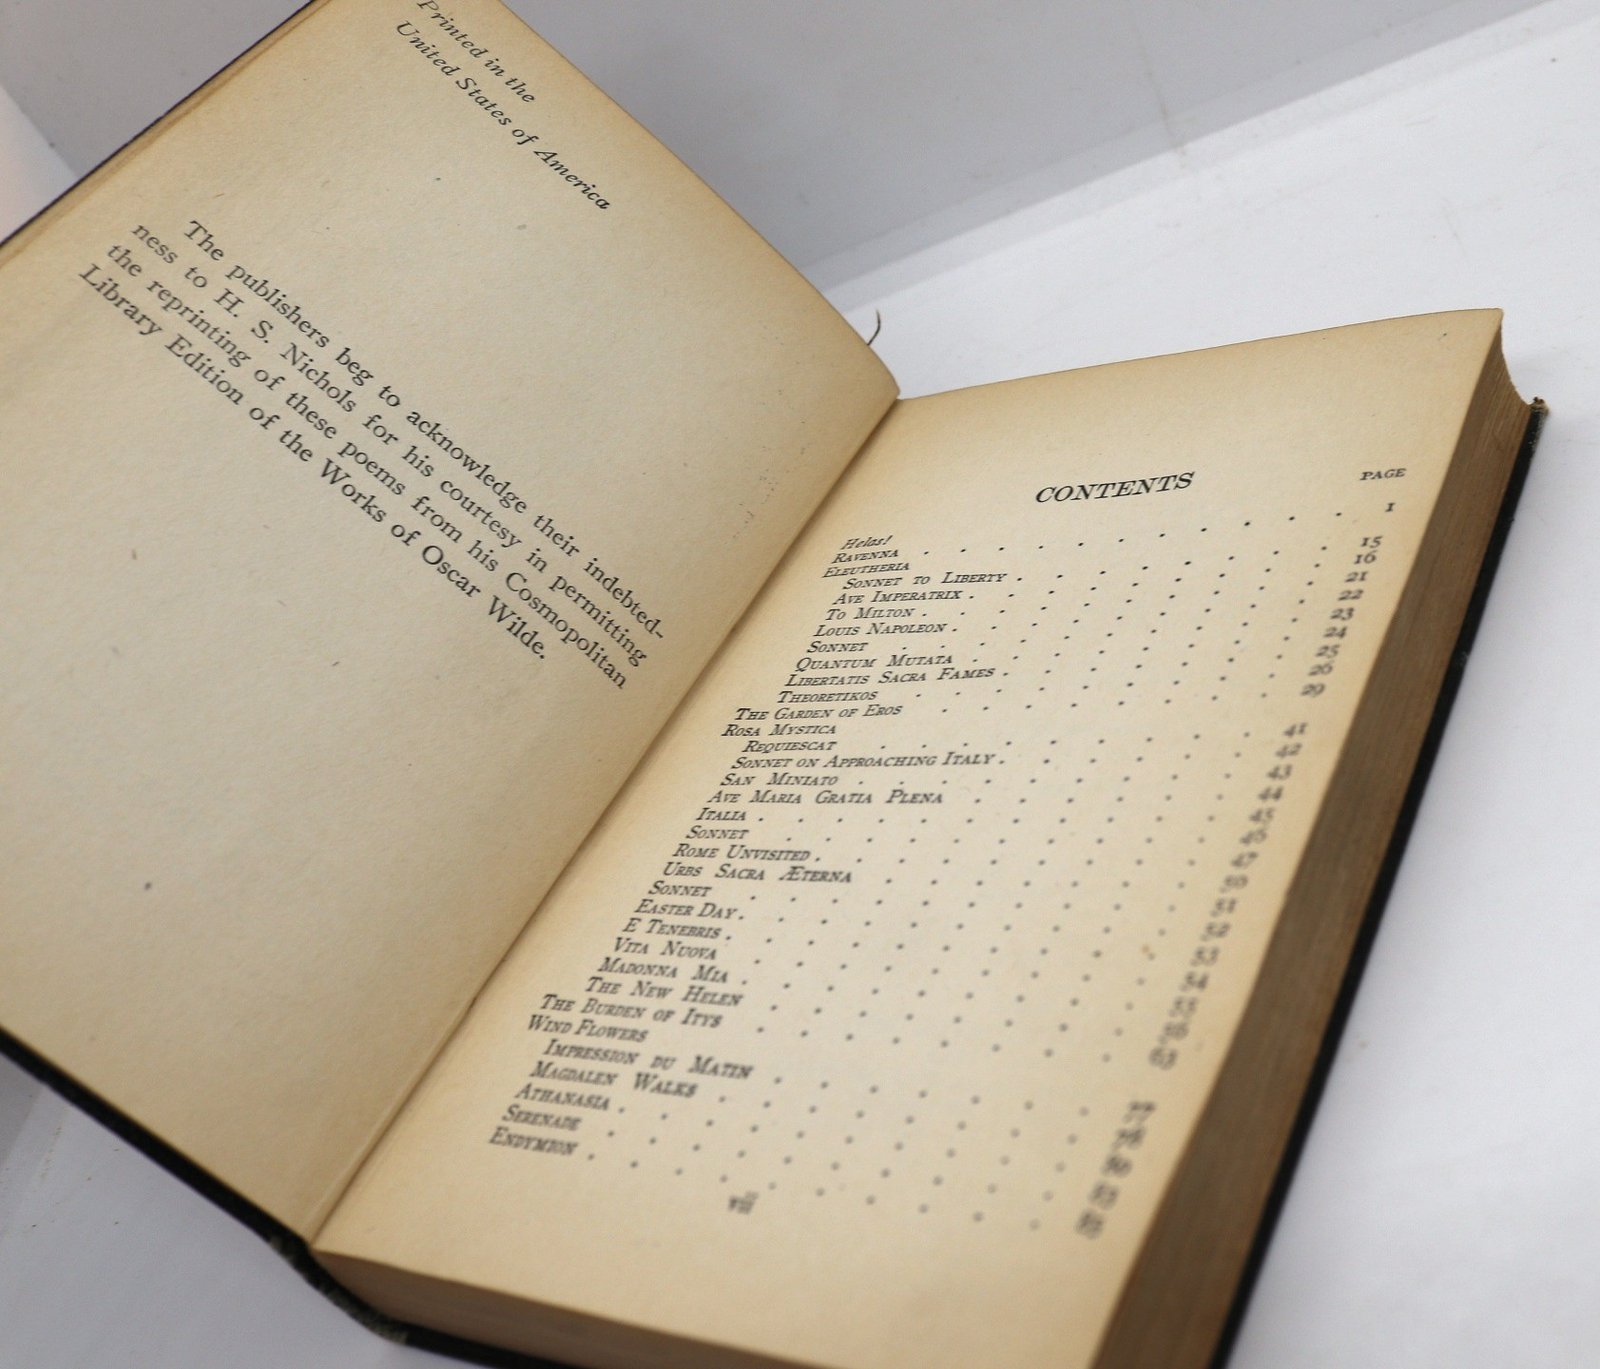 Printed in the
United States of America
The publishers beg to acknowledge their indebted-
ness to H. S. Nichols for his courtesy in permitting
the reprinting of these poems from his Cosmopolitan
Library Edition of the Works of Oscar Wilde.
CONTENTS
PAGE
Helas!
RAVENNA . . . . . . . . . 1
ELEUTHERIA
SONNET TO LIBERTY . . . . . . . 15
AVE IMPERATRIX . . . . . . . . 16
TO MILTON . . . . . . . . . 21
LOUIS NAPOLEON . . . . . . . . 22
SONNET . . . . . . . . . 23
QUANTUM MUTATA . . . . . . . 24
LIBERTATIS SACRA FAMES . . . . . . 25
THEORETIKOS . . . . . . . . 26
THE GARDEN OF EROS . . . . . . . 29
ROSA MYSTICA
REQUIESCAT . . . . . . . . 41
SONNET ON APPROACHING ITALY . . . . . . 42
SAN MINIATO . . . . . . . . 43
AVE MARIA GRATIA PLENA . . . . . . 44
ITALIA . . . . . . . . . 45
SONNET . . . . . . . . .
ROME UNVISITED . . . . . . . . 47
URBS SACRA ÆTERNA . . . . . . . 50
SONNET . . . . . . . . . 51
EASTER DAY . . . . . . . . . 52
E TENEBRIS . . . . . . . . . 53
VITA NUOVA . . . . . . . . 54
MADONNA MIA . . . . . . . . 55
THE NEW HELEN . . . . . . .
THE BURDEN OF ITYS . . . . . . .
WIND FLOWERS
IMPRESSION DU MATIN . . . . . . . 77
MAGDALEN WALKS . . . . . . . . 78
ATHANASIA . . . . . . . . .
SERENADE . . . . . . . . .
ENDYMION . . . . . . . . .
vii